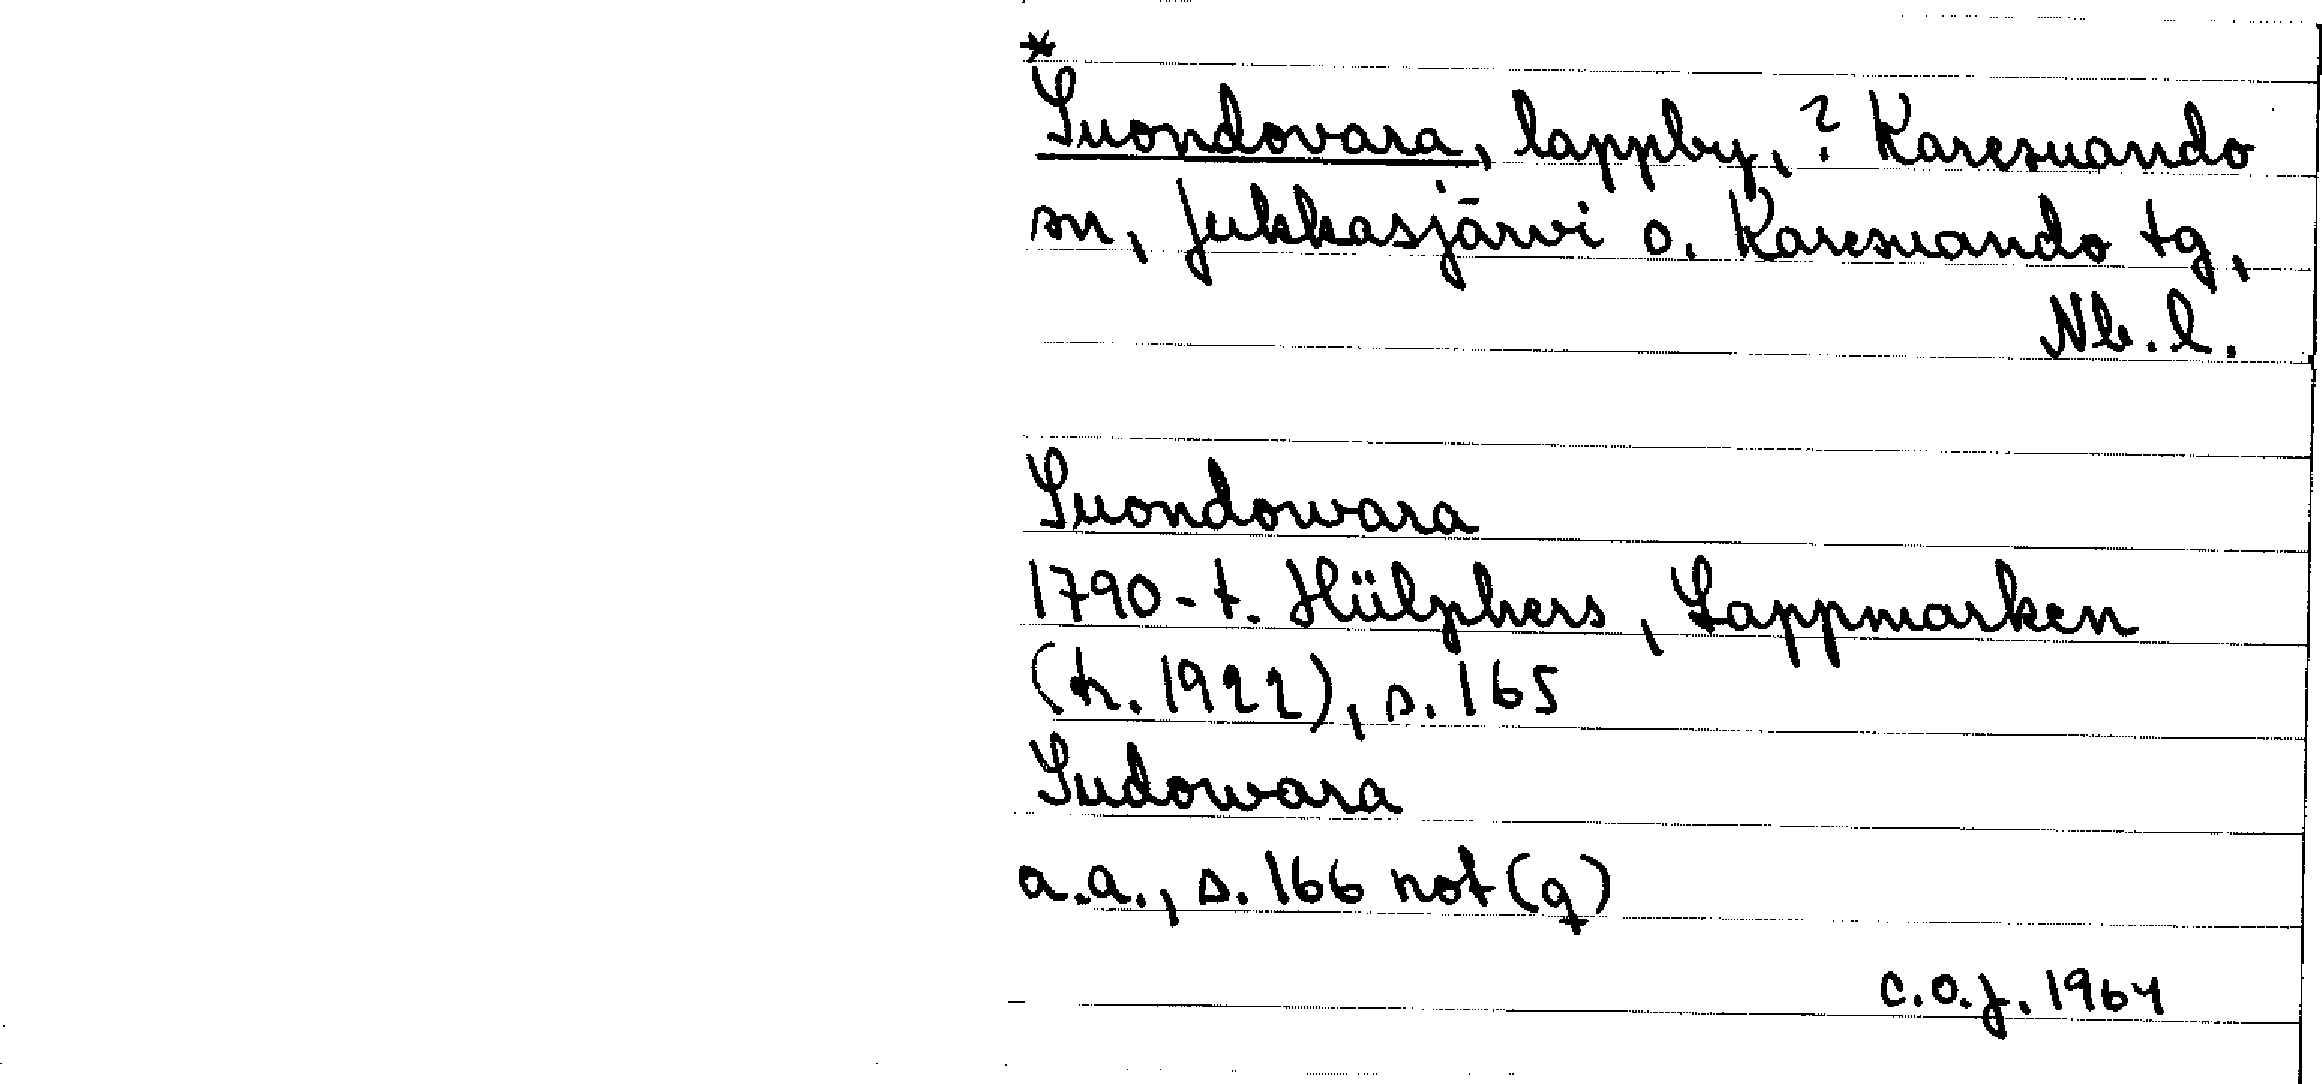 *
Suondovara, lappby, ? Karesuando
sn, Jukkasjärvi o. Karesuando tg,
Nb. l.
Suondowara
1790-t. Hülphers, Lappmarken
(tr. 1922), s. 165
Sudowara
a.a., s. 166 not (q)
C.O.J. 1964